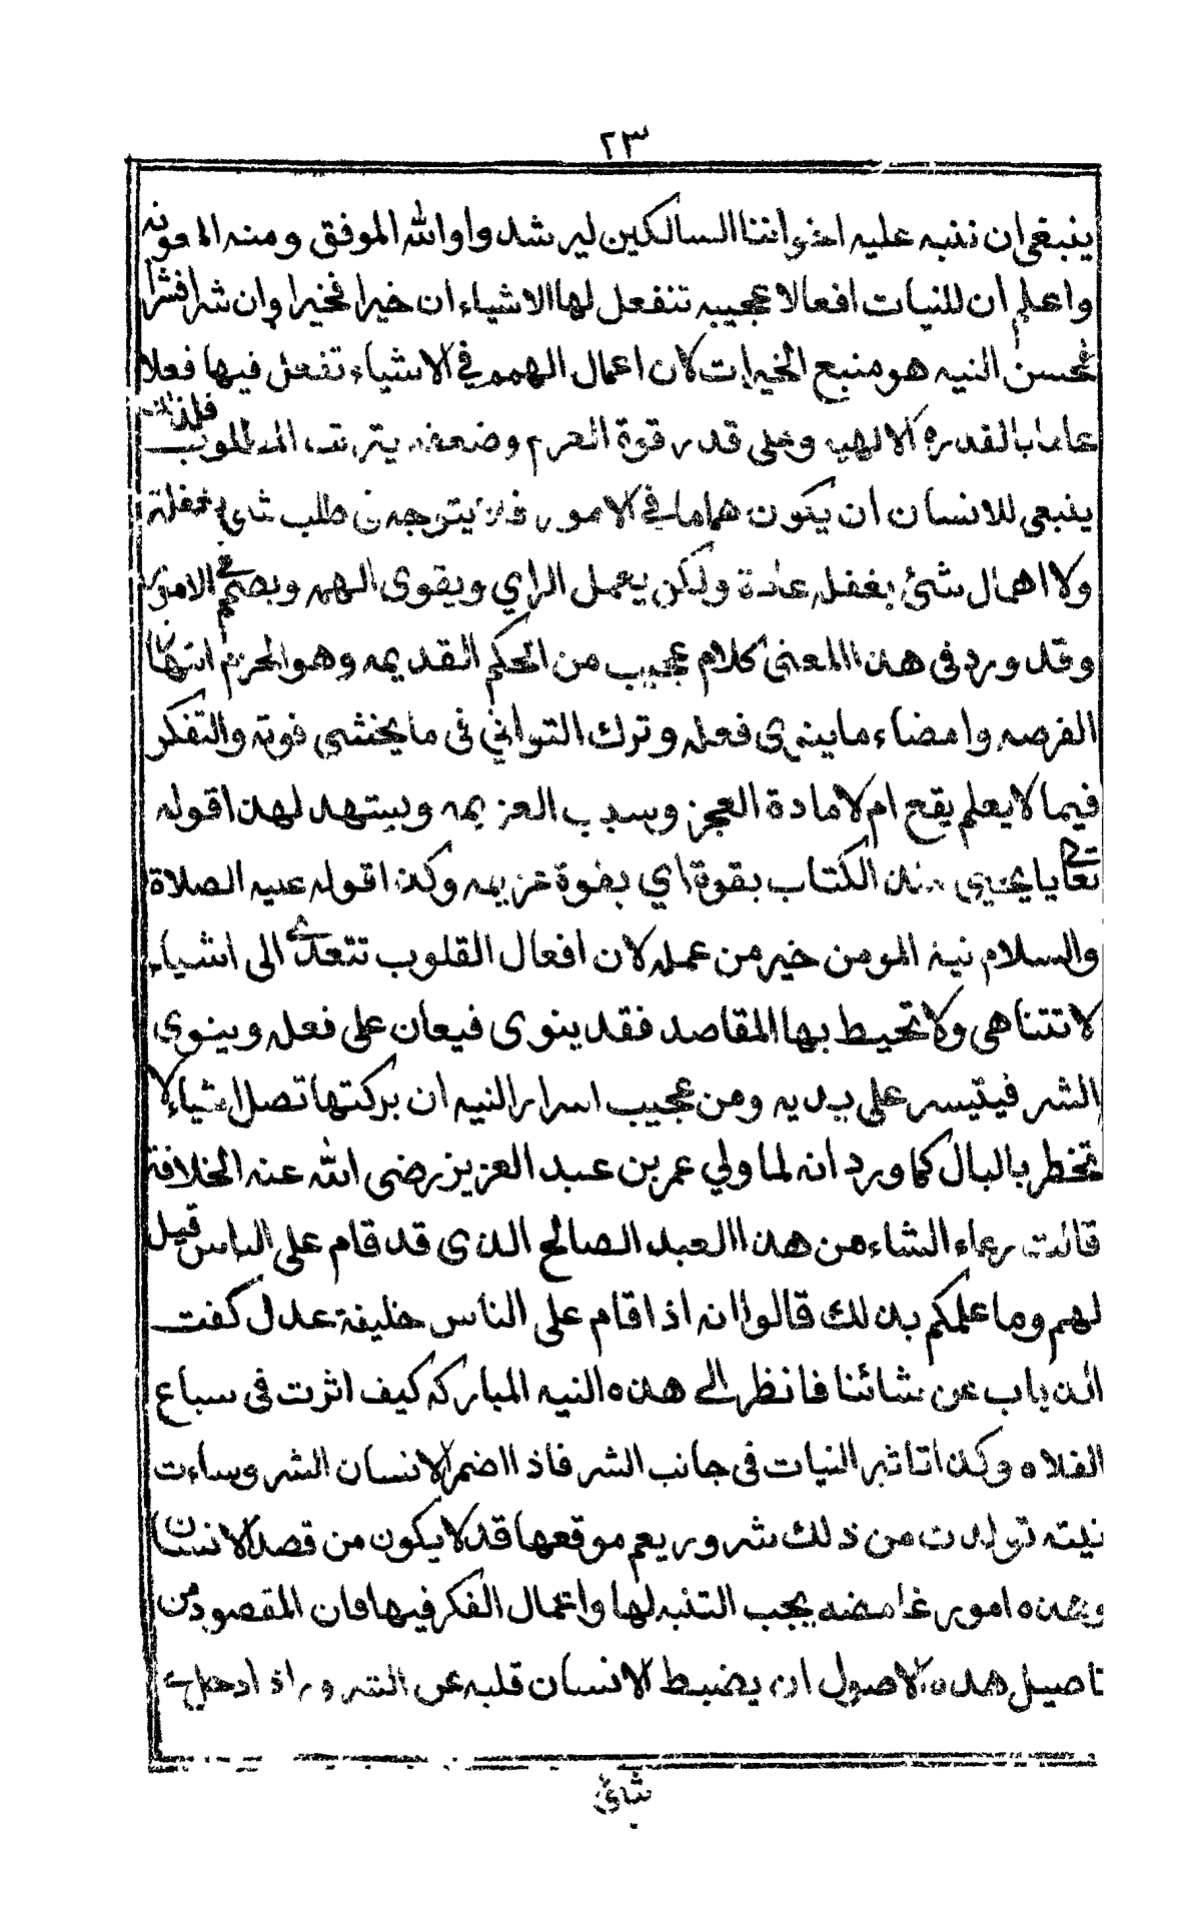 ٢٣
ينبغي ان ننبه عليه اخواننا السالكين ليرشدوا والله الموفق ومنه المعونه
واعلم ان للنيات افعالا عجيبه تنفعل لها الاشياء ان خيرا فخيرا وان شرا فشرا
فحسن النيه هو منبع الخيرات لان اعمال الهمم في الاشياء تفعل فيها فعلا
بالقدره الالهيه وعلى قدر قوة العزم وضعفه يترتب المطلوب فلذلك
ينبغي للانسان ان يكون هماما في الامور فلا يتوجه في طلب شاي بغفلة
ولا اهمال شئ بغفله عادة ولكن يعمل الراي ويقوى الهمه ويصمم في الامور
وقد ورد في هذا المعنى كلام عجيب من الحكم القديمه وهو الحزم انتهاز
الفرصه وامضاء ما ينوى فعله وترك التواني في ما يخشى فوته والتفكر
فيما لا يعلم يقع ام لا مادة العجز وسبب العزيمه ويستهد لهذا قوله
تعالى يايحيى خذ الكتاب بقوة اي بقوة عزيمه وكذا قوله عليه الصلاة
والسلام نية المومن خير من عمله لان افعال القلوب تتعدى الى اشياء
لا تتناهى ولا تحيط بها المقاصد فقد ينوى فيعان على فعله وينوي
الشر فيتيسر على يديه ومن عجيب اسرار النيه ان بركتها تصل اشياء لا
تخطر بالبال كما ورد انه لما ولي عمر بن عبد العزيز رضى الله عنه الخلافة
قالت رعاء الشاء من هذا العبد الصالح الذي قد قام على الناس قيل
لهم وما علمكم بذلك قالوا انه اذا قام على الناس خليفة عدل كفت
الذياب عن شائنا فانظر الى هذه النيه المباركه كيف اثرت في سباع
الفلاه وكذا تاثير النيات في جانب الشر فاذا اضمر الانسان الشر وساءت
نيته تولدت من ذلك شرور يعم موقعها قد لا يكون من قصد الانسان
وهذه امور غامضه يجب التنبه لها واعمال الفكر فيها فان المقصود من
تاصيل هذه الاصول ان يضبط الانسان قلبه عن الشرور اذا دخل في
شائ